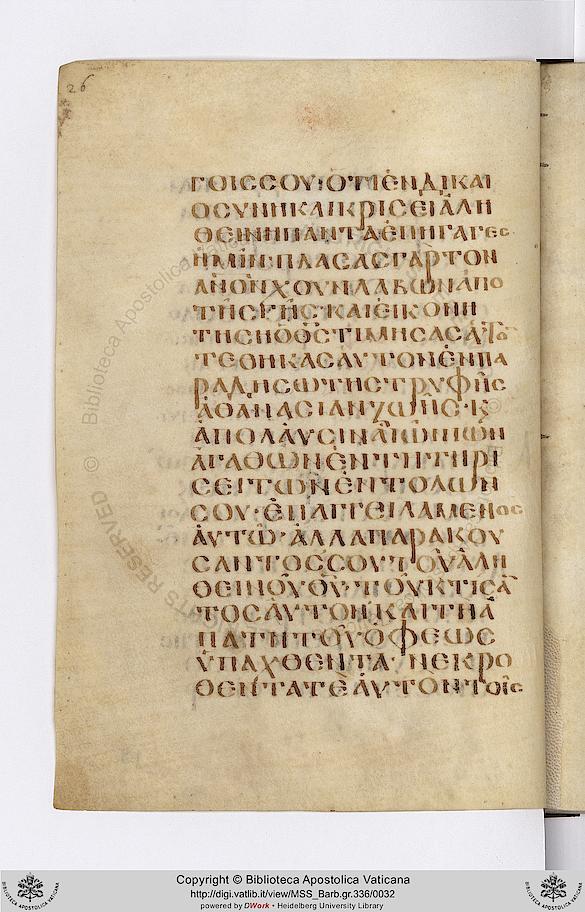 26
ΓΟΙC CΟΥ· ΟΤΙ ΕΝ ΔΙΚΑΙ
ΟCΥΝΗ ΚΑΙ ΚΡΙCΕΙ ΑΛΗ
ΘΕΙΝΗ ΠΑΝΤΑ ΕΠΗΓΑΓΕC
ΗΜΙΝ· ΠΛΑCΑC ΓΑΡ ΤΟΝ
ΑΝΟΝ ΧΟΥΝ ΛΑΒΩΝ ΑΠΟ
ΤΗC ΓΗC· ΚΑΙ ΕΙΚΟΝΗ
ΤΗ CΗ Ο ΘC ΤΙΜΗCΑC ΑΥΤΟ
ΤΕΘΗΚΑC ΑΥΤΟΝ ΕΝ ΠΑ
ΡΑΔΗCΩ ΤΗC ΤΡΥΦΗC
ΑΘΑΝΑCΙΑΝ ΖΩΗC· Κ
ΑΠΟΛΑΥCΙΝ ΑΙΩΝΙΩΝ
ΑΓΑΘΩΝ ΕΝ ΤΗ ΤΗΡΙ
CΕΙ ΤΩΝ ΕΝΤΟΛΩΝ
CΟΥ· ΕΠΑΓΓΕΙΛΑΜΕΝΟC
ΑΥΤΩ· ΑΛΛΑ ΠΑΡΑΚΟΥ
CΑΝΤΟC CΟΥ ΤΟΥ ΑΛΗ
ΘΕΙΝΟΥ ΘΥ· ΤΟΥ ΚΤΙCΑ
ΤΟC ΑΥΤΟΝ· ΚΑΙ ΤΗ Α
ΠΑΤΗ ΤΟΥ ΟΦΕΩC
ΥΠΑΧΘΕΝΤΑ· ΝΕΚΡΟ
ΘΕΝΤΑ ΤΕ ΑΥΤΟΝ ΤΟΙC
© Biblioteca Apostolica Vaticana
RIGHTS RESERVED ©
Copyright © Biblioteca Apostolica Vaticana
http://digi.vatlib.it/view/MSS_Barb.gr.336/0032
powered by DWork • Heidelberg University Library